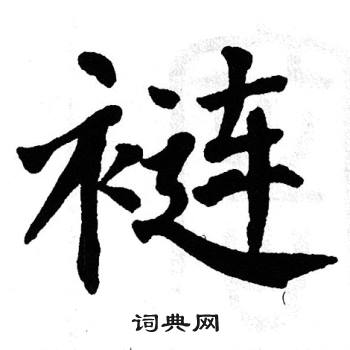 裢
词典网